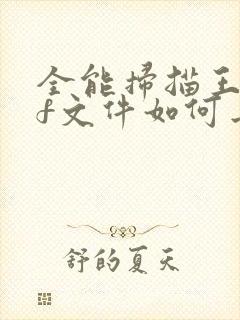 全能掃描王
f文件如何
舒的夏天